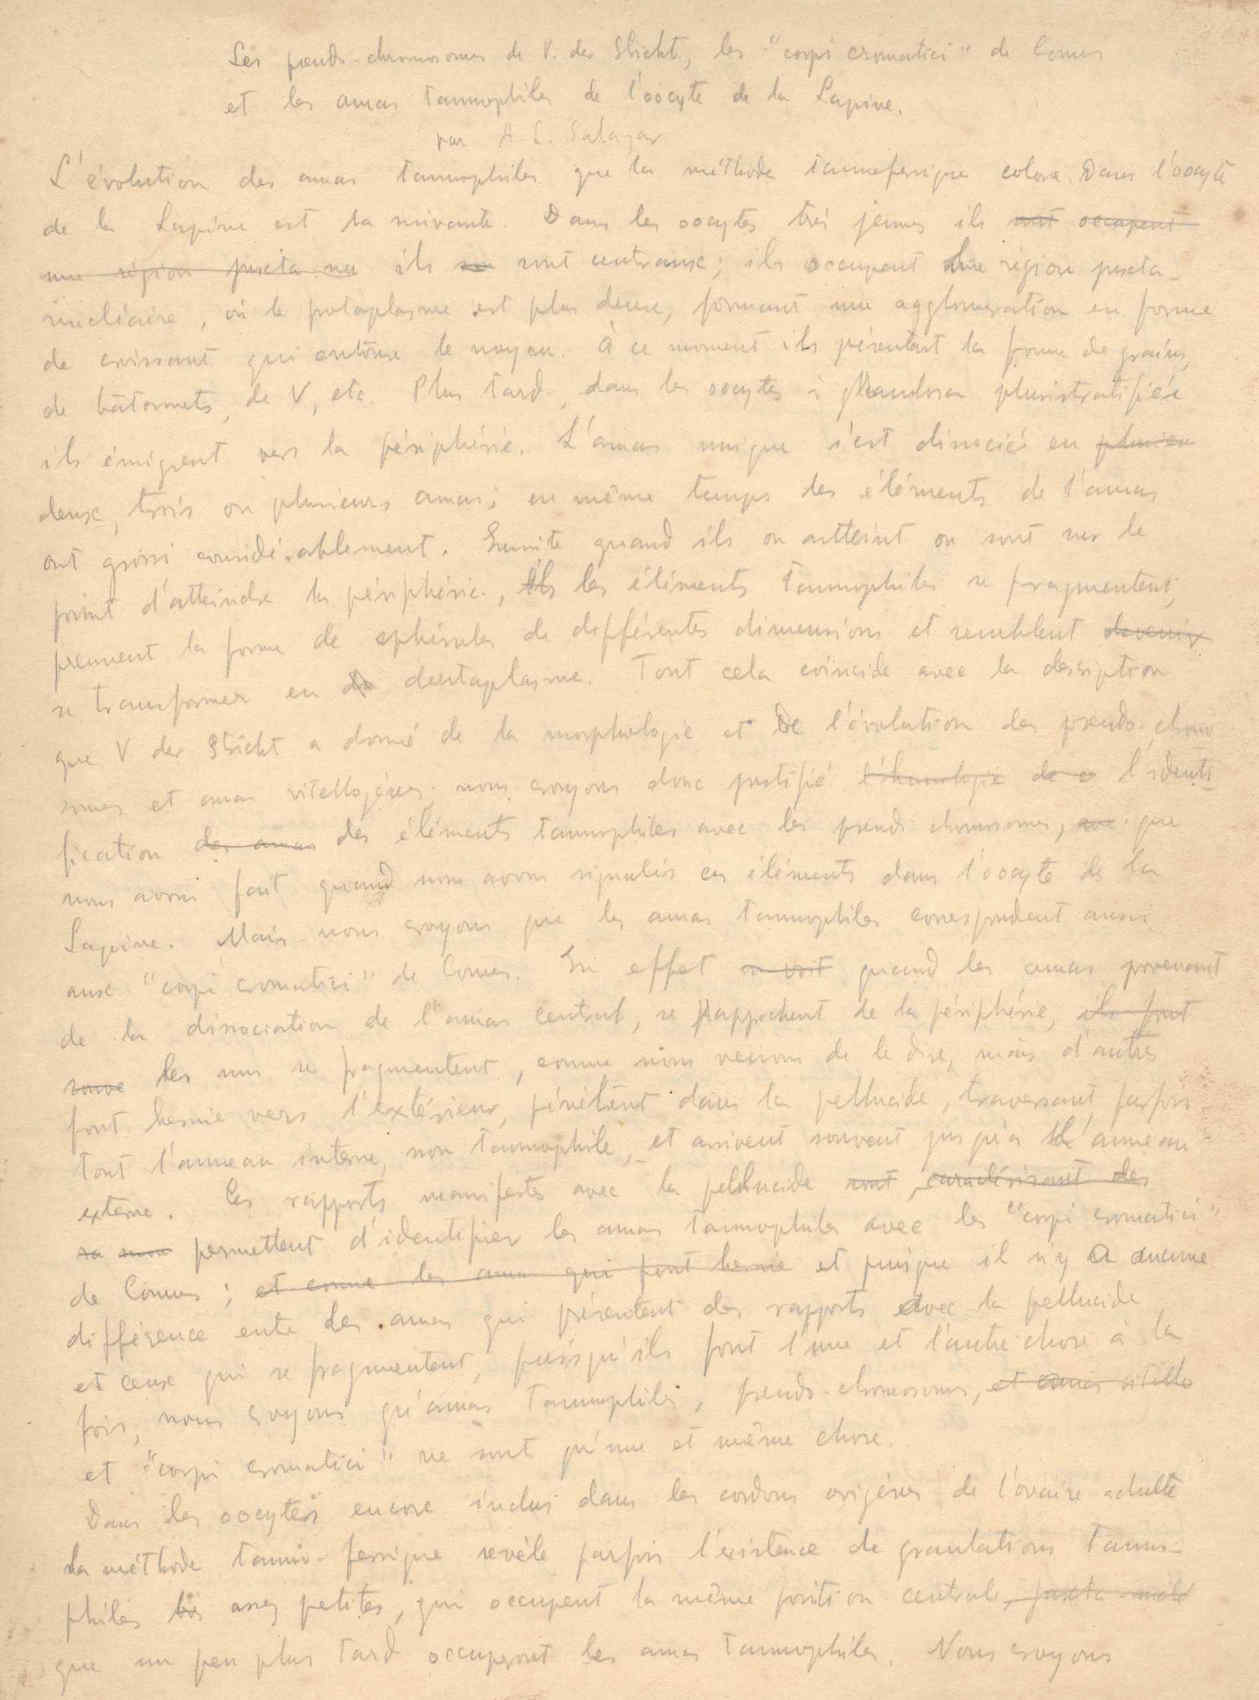 Les pseudo-chromosomes de V. der Stricht, les "corpi cromatici" de Comes
et les amas tannophiles de l'oocyte de la Lapine.
par A. L. Salazar
L'évolution des amas tannophiles que la méthode tannoferrique colore Dans l'oocyte
de la Lapine est la suivante. Dans les oocytes très jeunes ils sont occupent
une région juxta nu ils se sont centraux; ils occupent une région juxta-
nucléaire, où le protoplasme est plus dense, formant une agglomération en forme
de croissant qui entoure le noyau. À ce moment ils présentent la forme de grains,
de bâtonnets, de V, etc. Plus tard, dans les oocytes à granulosa pluristratifiée
ils émigrent vers la périphérie. L'amas unique s'est dissocié en plusieu
deux, trois ou plusieurs amas; en même temps les éléments de l'amas
ont grossi considérablement. Ensuite quand ils on atteint ou sont sur le
point d'atteindre la périphérie, ils les éléments tannophiles se fragmentent,
prennent la forme de sphérules de différentes dimensions et semblent devenir
se transformer en de deutoplasme. Tout cela coïncide avec la description
que V der Stricht a donné de la morphologie et de l'évolution des pseudo-chromo
somes et amas vitellogènes; nous croyons donc justifié l'homologie de c l'identi
fication des amas des éléments tannophiles avec les pseudo chromosomes, avec que
nous avons fait quand nous avons signalés ces éléments dans l'oocyte de la
Lapine. Mais nous croyons que les amas tannophiles correspondent aussi
aux "corpi cromatici" de Comes. En effet on voit quand les amas provenant
de la dissociation de l'amas central, se rapprochent de la périphérie, ils font
souve les uns se fragmentent, comme nous venons de le dire, mais d'autres
font hernie vers l'extérieur, pénètrent dans la pellucide, traversant parfois
tout l'anneau interne, non tannophile, et arrivent souvent jusqu'à l'anneau
externe. Ces rapports manifestes avec la pellucide sont caractérisant des
permettent d'identifier les amas tannophiles avec les "corpi cromatici"
de Comes; et comme les amas qui font hernie et puisque il n'y a aucune
différence entre les amas qui présentent des rapports avec la pellucide
et ceux qui se fragmentent, puisqu'ils font l'une et l'autre chose à la
fois, nous croyons qu'amas tannophiles, pseudo-chromosomes, et amas vitello
et "corpi cromatici" ne sont qu'une et même chose.
Dans les oocytes encore inclus dans les cordons ovigènes de l'ovaire adulte
la méthode tanno-ferrique revèle parfois l'existence de granulations tanno-
philes assez petites, qui occupent la même position centrale, juxta-nuclé
que un peu plus tard occuperont les amas tannophiles. Nous croyons